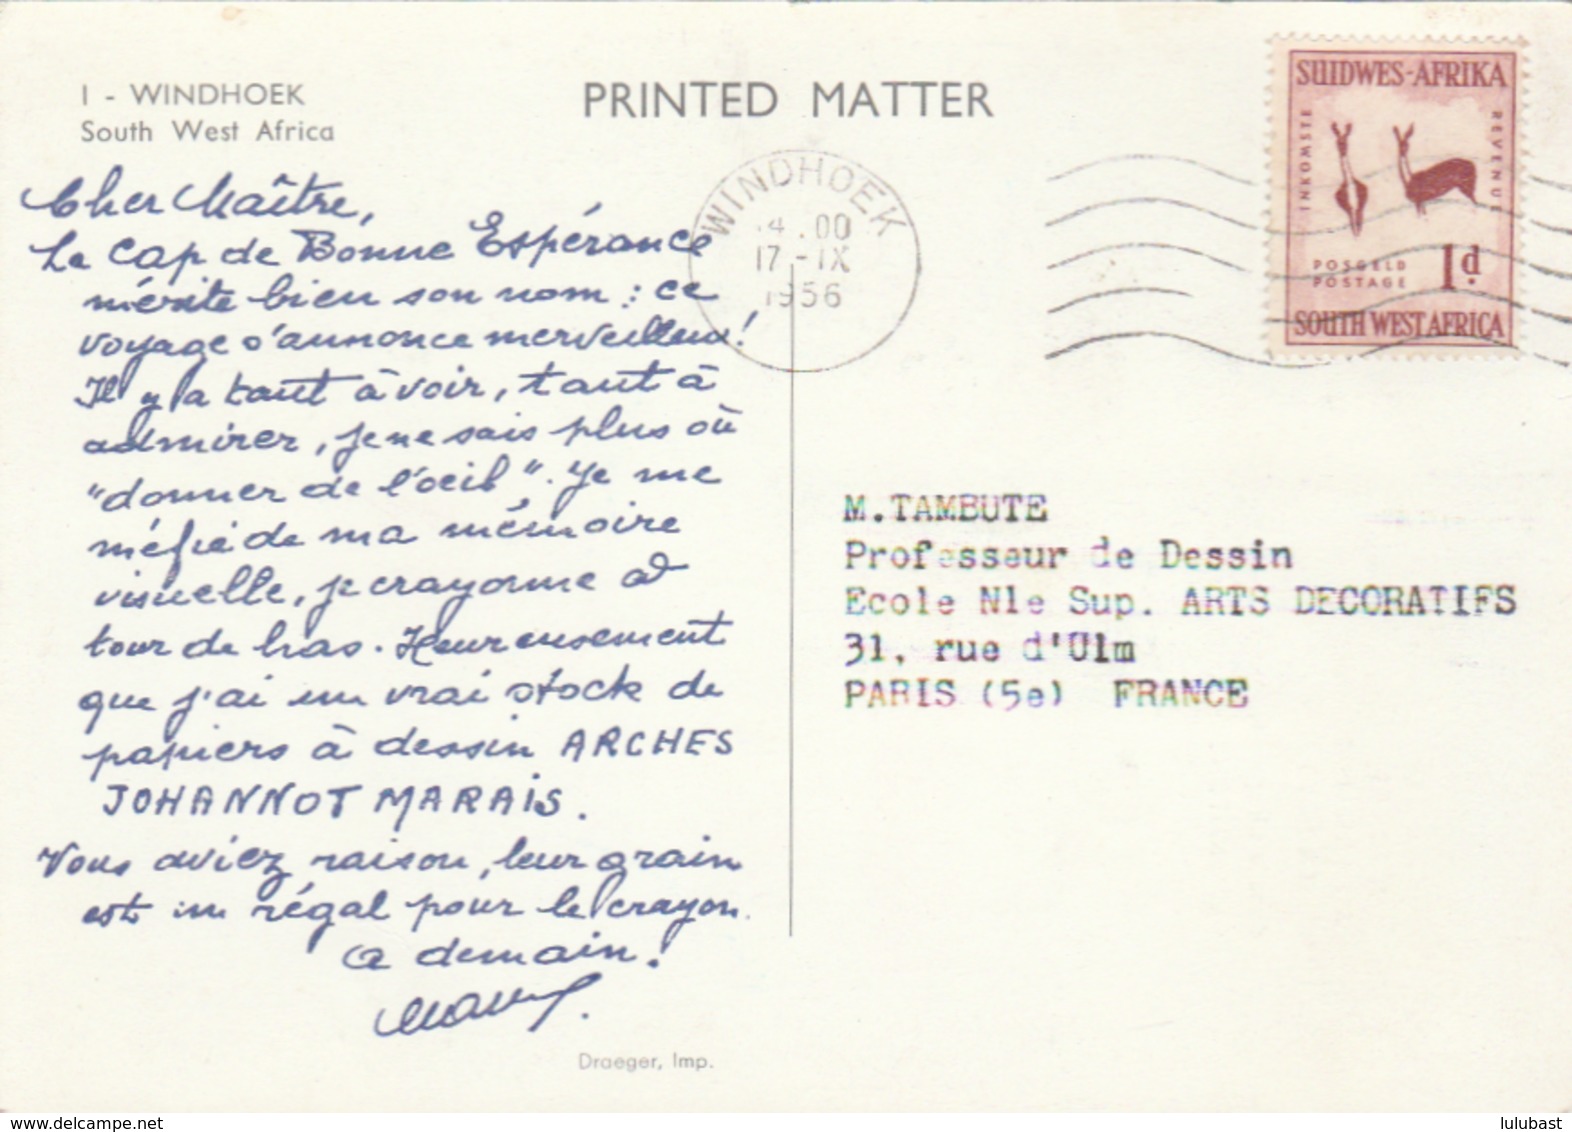 1 - WINDHOEK
South West Africa
PRINTED MATTER
SUIDWES-AFRIKA
INKOMSTE
REVENUE
POSGELD
POSTAGE
1d.
SOUTH WEST AFRICA
WINDHOEK
14.00
17-IX
1956
Cher Maître,
Le Cap de Bonne Espérance
mérite bien son nom : ce
voyage s'annonce merveilleux!
Il y a tant à voir, tant à
admirer, je ne sais plus où
"donner de l'oeil". Je me
méfie de ma mémoire
visuelle, je crayonne à
tour de bras. Heureusement
que j'ai un vrai stock de
papiers à dessin ARCHES
JOHANNOT MARAIS.
Vous aviez raison, leur grain
est un régal pour le crayon.
A demain.
Draeger, Imp.
M. TAMBUTE
Professeur de Dessin
Ecole Nle Sup. ARTS DECORATIFS
31, rue d'Ulm
PARIS (5e) FRANCE
lulubast